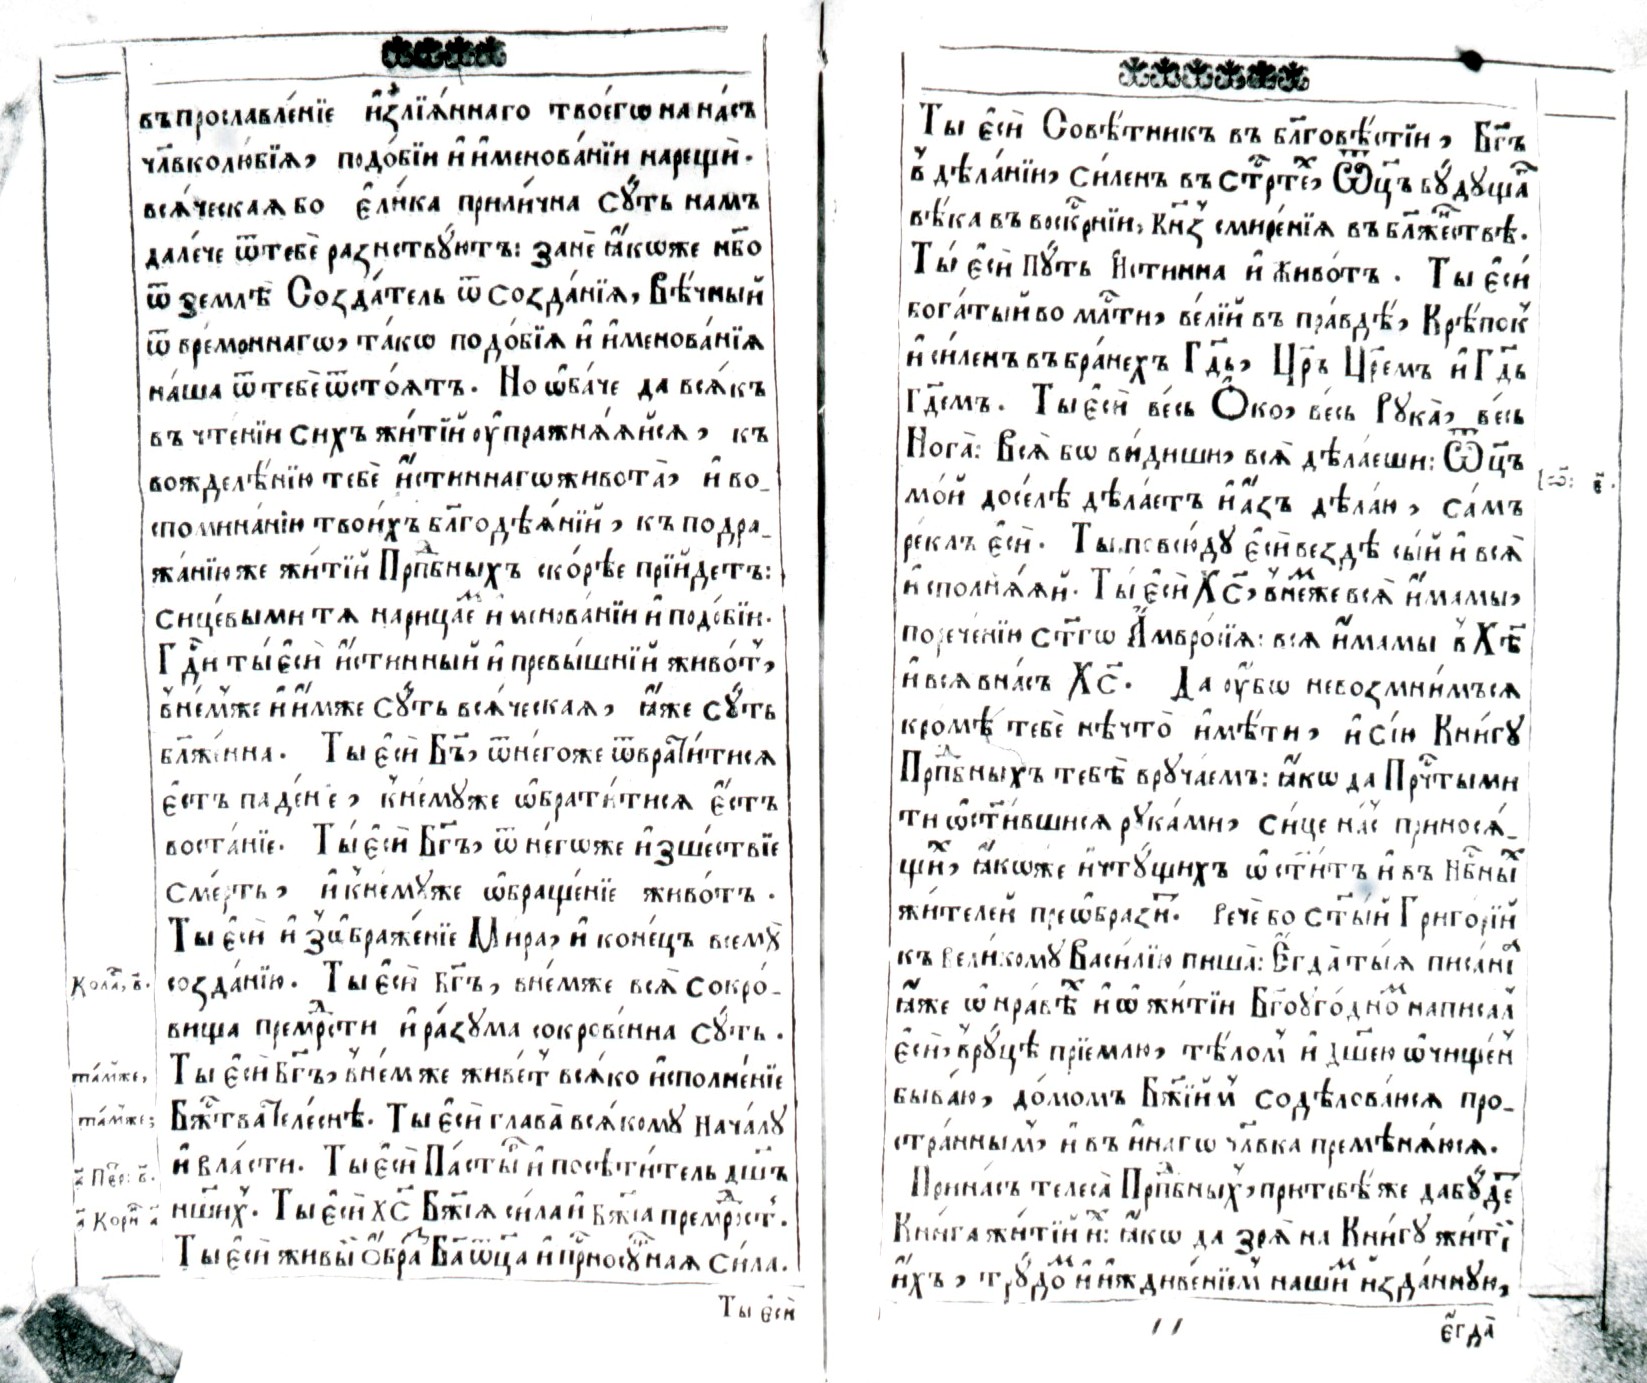 въ прославле́нїе и҆з̾лїѧ́ннагѡ твоегѡ̀ на на́съ
чл҃вколю́бїѧ, подо́бїи и҆ и҆менова́нїи нарещѝ.
всѧ́ческаѧ бо є҆ли́ка прили́чна сꙋ́ть намъ
дале́че ѿ тебѐ разнствꙋ́ютъ: занѐ ꙗ҆́коже нб҃о
ѿ землѝ Созда́тель ѿ созда́нїѧ, Вѣ́чный
ѿ вре́меннагѡ, та́кѡ подо́бїѧ и҆ и҆менова́нїѧ
на́ша ѿ тебѐ ѿстоѧ́тъ. Но ѡ҆ба́че да всѧ́къ
въ чте́нїи сихъ жи́тїй оу҆пражнѧ́ѧйсѧ, къ
вожделѣ́нїю тебѐ и҆́стиннагѡ живота̀, и҆ во_
спомина́нїю твои́хъ бл҃годѣѧ́нїй, къ подра_
жа́нїю же жи́тїй Прпⷣбныхъ ско́рѣе прїи́детъ:
сице́выми тѧ нарица́еⷨ и҆менова́нїи и҆ подо́бїи.
Гдⷭ҇и ты̀ є҆сѝ и҆́стинный и҆ превы́шнїй живо́тъ,
в̾не́мже и҆ и҆́мже сꙋ́ть всѧ́ческаѧ, ꙗ҆́же сꙋ́ть
бл҃же́нна. Ты̀ є҆сѝ Бг҃ъ, ѿ негоже ѿврати́тисѧ
є҆́стъ паде́нїе, к̾немꙋ́же ѡ҆брати́тисѧ є҆́стъ
воста́нїе. Ты̀ є҆сѝ Бг҃ъ, ѿ негѡ́же и҆зше́ствїе
сме́рть, и҆ к̾немꙋ́же ѡ҆браще́нїе живо́тъ.
Ты̀ є҆сѝ и҆ з̾ѡбраже́нїе Ми́ра, и҆ коне́цъ всемꙋ̀
созда́нїю. Ты̀ є҆сѝ Бг҃ъ, вне́мже всѧ̀ сокро́_
вища премⷣрости и҆ ра́зꙋма сокрове́нна сꙋ́ть.
Ты̀ є҆сѝ Бг҃ъ, в̾не́мже живе́тъ всѧ́ко и҆сполне́нїе
Бжⷭ҇тва̀ тѣле́снѣ. Ты̀ є҆сѝ глава̀ всѧ́комꙋ нача́лꙋ
и҆ вла́сти. Ты̀ є҆сѝ Па́стырь и҆ посѣти́тель дш҃ъ
нш҃ихъ. Ты̀ є҆сѝ Хс҃ Бж҃їѧ си́ла и҆ Бж҃їѧ премⷣрость.
Ты̀ є҆сѝ живы́й О҆́браз Бг҃а Ѻц҃а̀ и҆ прⷭ҇носꙋ́щнаѧ Си́ла.
Ты є҆сѝ
Кола́, в҃.
та́мже,
та́мже;
а҃ Пет: в҃.
а҃ Кори҇н а҃
Ты̀ є҆сѝ Совѣ́тникъ въ бл҃говѣ́стїи, Бг҃ъ
в̾ дѣла́нїи, си́ленъ въ стрⷭ҇те, Ѻц҃ъ бꙋ́дꙋщаⷢ҇
вѣ́ка въ воскр҇нїи, Кнѧ҃зь смире́нїѧ въ бл҃же́нствѣ.
Ты̀ є҆сѝ Пꙋ́ть И҆́стинна и҆ Живо́тъ. Ты̀ є҆сѝ
бога́тый во млⷭ҇ти, ве́лїй въ пра́вдѣ, Крѣ́пок̾
и҆ си́ленъ въ бра́нехъ Гдⷭ҇ь, Цр҃ь Цр҃емъ и҆ Гдⷭ҇ь
гдⷭ҇емъ. Ты̀ є҆сѝ ве́сь О҆́ко, ве́сь Рꙋка̀, ве́сь
Нога̀: Всѧ̀ бо ви́диши, всѧ̀ дѣ́лаеши: Ѻц҃ъ
мо́й досе́лѣ дѣ́лаетъ и҆ а҆́зъ дѣ́лаю, са́мъ
ре́клъ є҆сѝ. Ты̀ повсю́дꙋ є҆сѝ вездѣ̀ сы́й и҆ всѧ̀
и҆сполнѧ́ѧй. Ты̀ є҆сѝ Хс҃, в̾не́мже всѧ̀ и҆́мамы,
по рече́нїи ст҃гѡ А҆мвро́сїѧ: всѧ и҆́мамы в̾ Хѣ҃
и҆ всѧ в на́съ Хс҃. Да оу҆́бо невозмни́мъсѧ
кромѣ̀ тебѐ нѣ́что и҆мѣ́ти, и҆ сїю̀ Кни́гꙋ
Прпⷣбныхъ тебѣ̀ врꙋча́емъ: ꙗ҆́кѡ да Прчⷭ҇тыми
ти ѡ҆ст҃и́вшисѧ рꙋка́ми, си́це на́с приносѧ́_
щиⷯ, ꙗ҆́коже и҆ чтꙋ́щихъ ѡ҆ст҃и́тъ и҆ въ Нбⷭ҇ныⷯ
жи́телей преѡбрази́тъ. Рече́ бо ст҃ы́й Григо́рїй
къ вели́комꙋ Васи́лїю пиша̀: Є҆гда̀ ты́ѧ писа́нїѧ
ꙗ҆́же ѡ҆ нра́вѣⷯ и҆ ѡ҆ жи́тїи Бг҃оуго́дноⷨ написа́л
є҆сѝ, в̾рꙋ́цѣ прїе́млю, тѣ́лом̾ и҆ дш҃ею ѡ҆чище́н̾
быва́ю, до́момъ Бж҃їим̾ содѣ́ловаюсѧ про_
стра́нным̾, и҆ въ и҆на́гѡ чл҃вка премѣнѧ́юсѧ.
Прина́съ телеса̀ Прпⷣбныхъ, при тебѣ́ же да бꙋ́де
Кни́га жи́тїй и҆́х: ꙗ҆́кѡ да зрѧ̀ на Кни́гꙋ жи́тїй
и҆́хъ, трꙋдо́ⷨ и҆ и҆ждиве́нїем̾ на́шиⷨ и҆з̾да́ннꙋю,
є҆гда̀